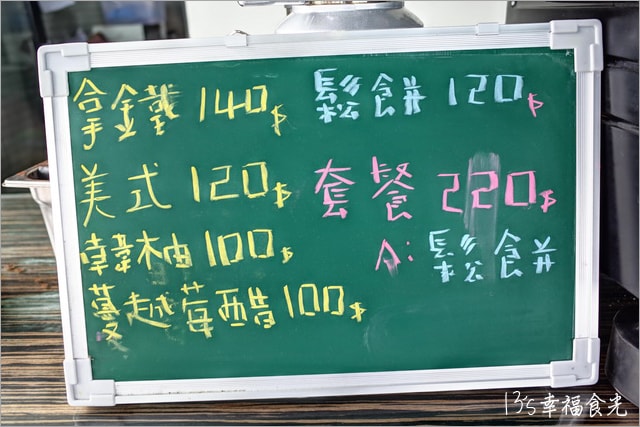 拿鐵 140$
美式 120$
韓柚 100$
蔓越莓醋 100$
鬆餅 120$
套餐 220$
A: 鬆餅
135幸福食光